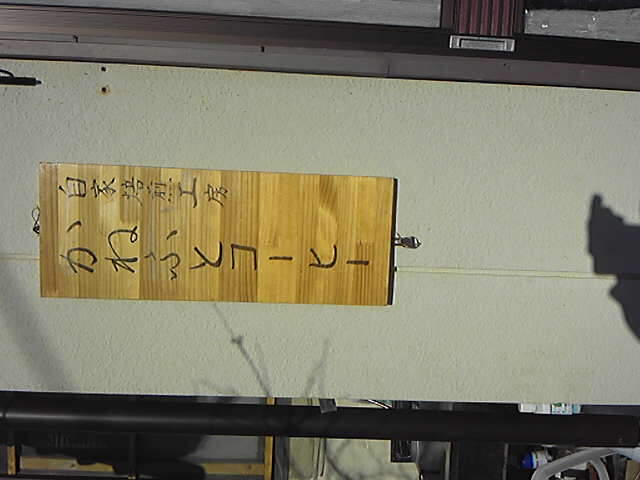 自家焙煎工房
かねふとコーヒー